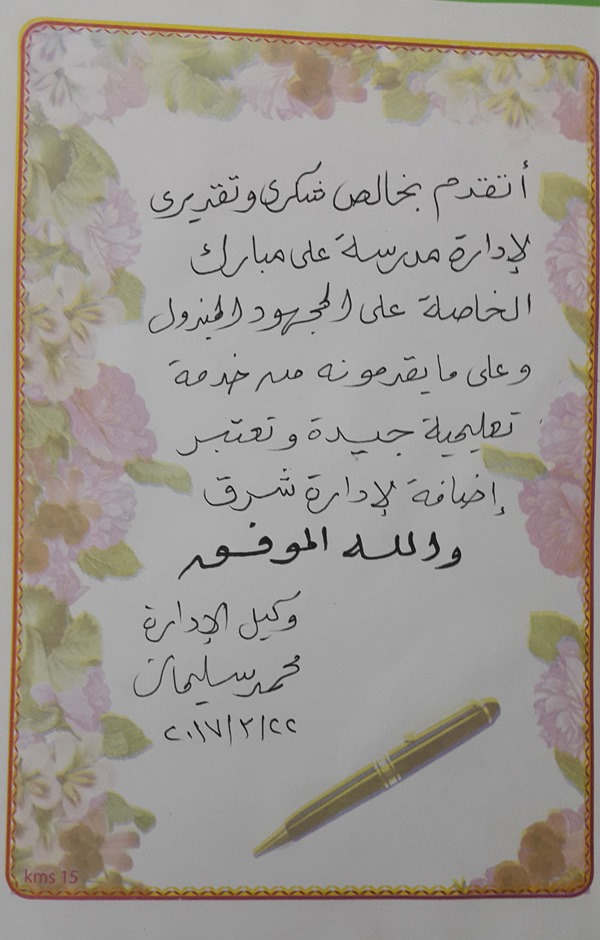 أتقدم بخالص شكرى وتقديرى
لإدارة مدرسة على مبارك
الخاصة على المجهود المبذول
وعلى ما يقدمونه من خدمة
تعليمية جيدة وتعتبر
إضافة لإدارة شرق
والله الموفق
وكيل الإدارة
محمد سليمان
٢٠١٧/٢/٢٢
kms 15